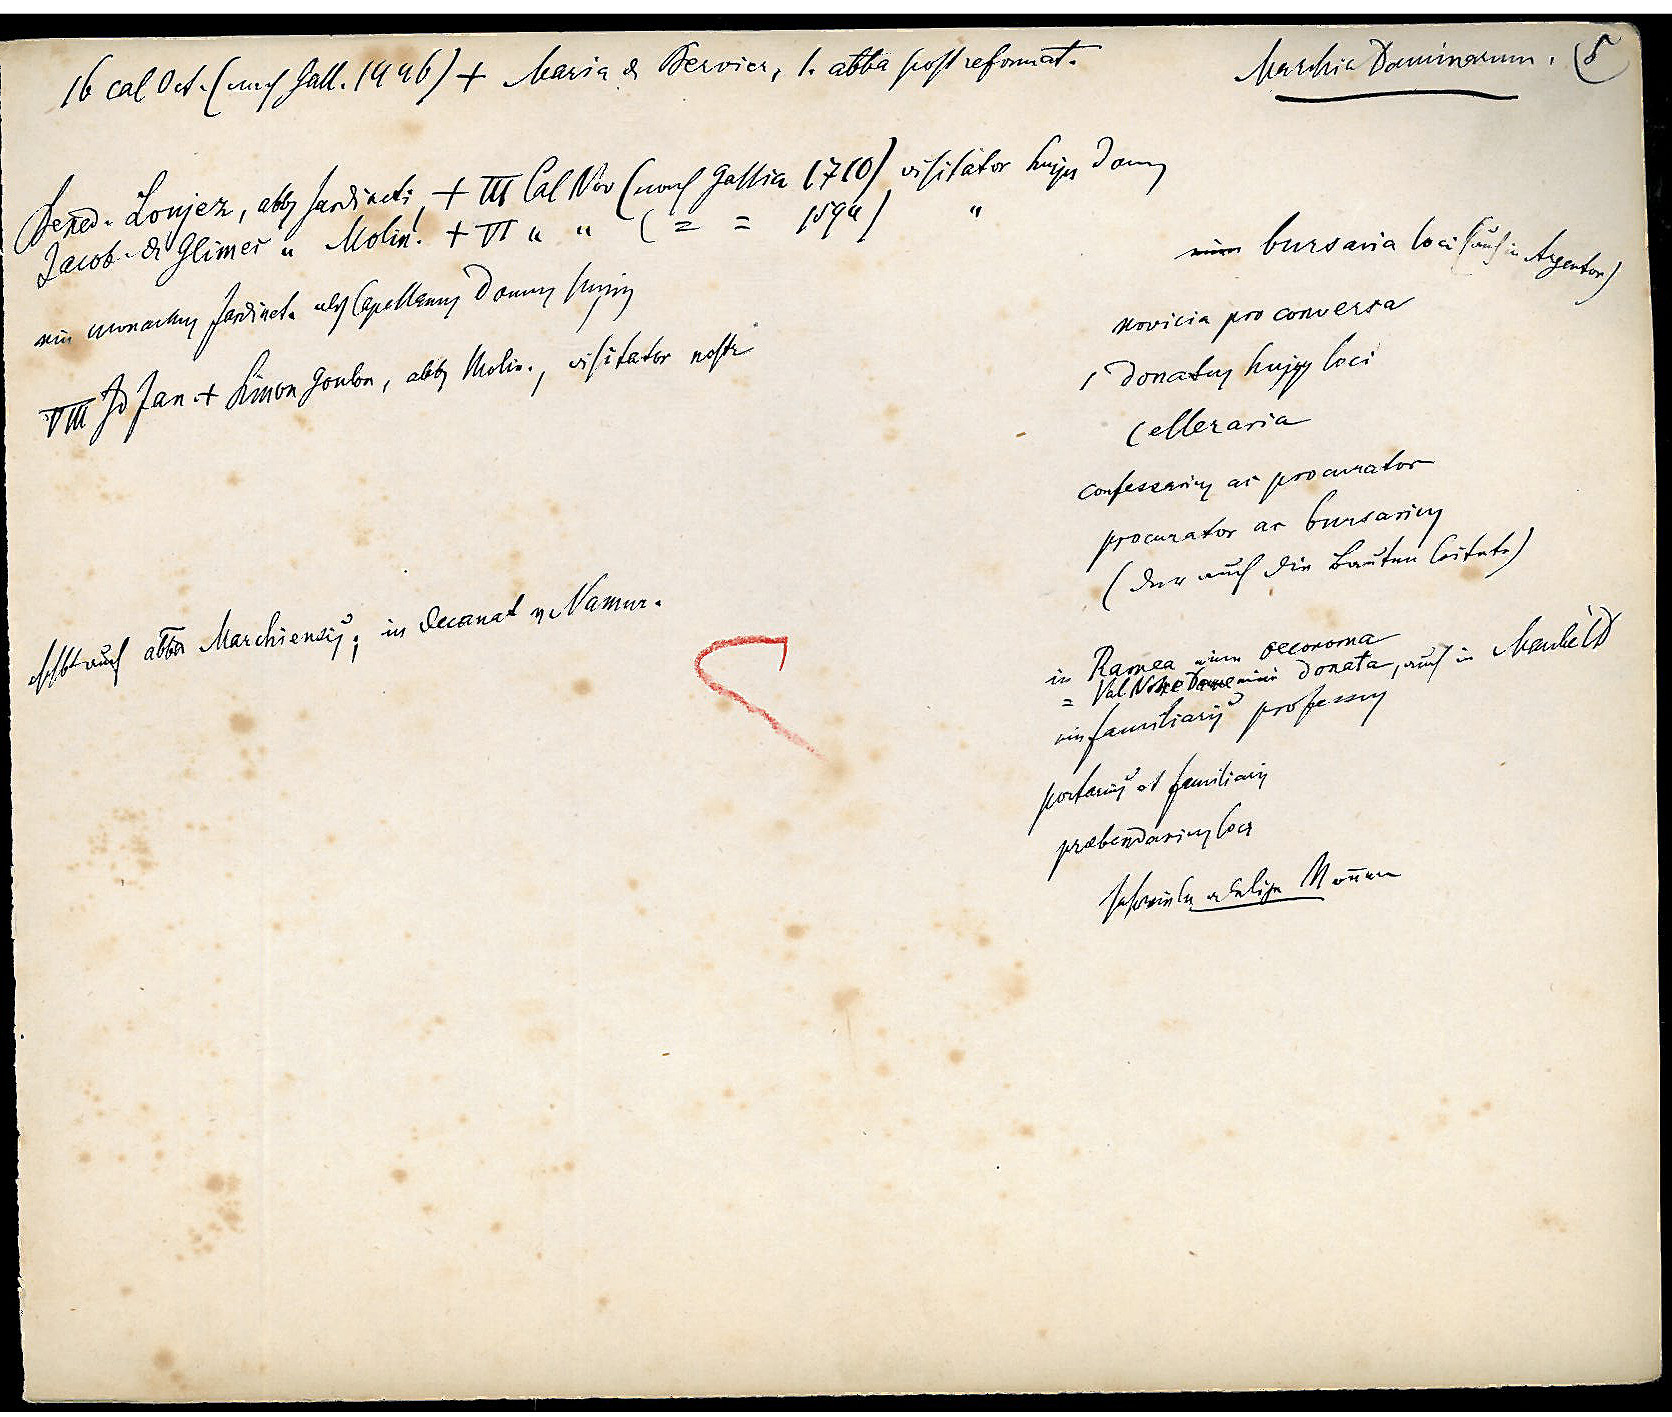 16 cal Oct. (nach Gall. 1446) + Maria de Bervier, 1. abba post reformat.
Marchia Dominarum. (5
Bened. Lonjez, abbs Jardineti, + III Cal Nov (nach Gallia 1710) visitator hujus Domus
Jacob. de Glimes " Molin! + VI " " ( = = 1594) "
ein monachus Jardinet. als Capellanus Domus hujus
VIII Id Jan. + Simon Goulon, abbs Molin., visitator nostr
heisst auch abba Marchiensis; in Decanat v. Namur.
eine bursaria loci (auch in Argenton)
novicia pro conversa
1 Donatus hujus loci
Celleraria
confessarius ac procurator
procurator ac bursarius
(der auch die Bauten leitete)
in Ramea eine oeconoma
= Val Notre Dame eine Donata, auch in Maubeld
ein familiaris professus
portarius et familiaris
præbendarius loci
adelige Nonnen